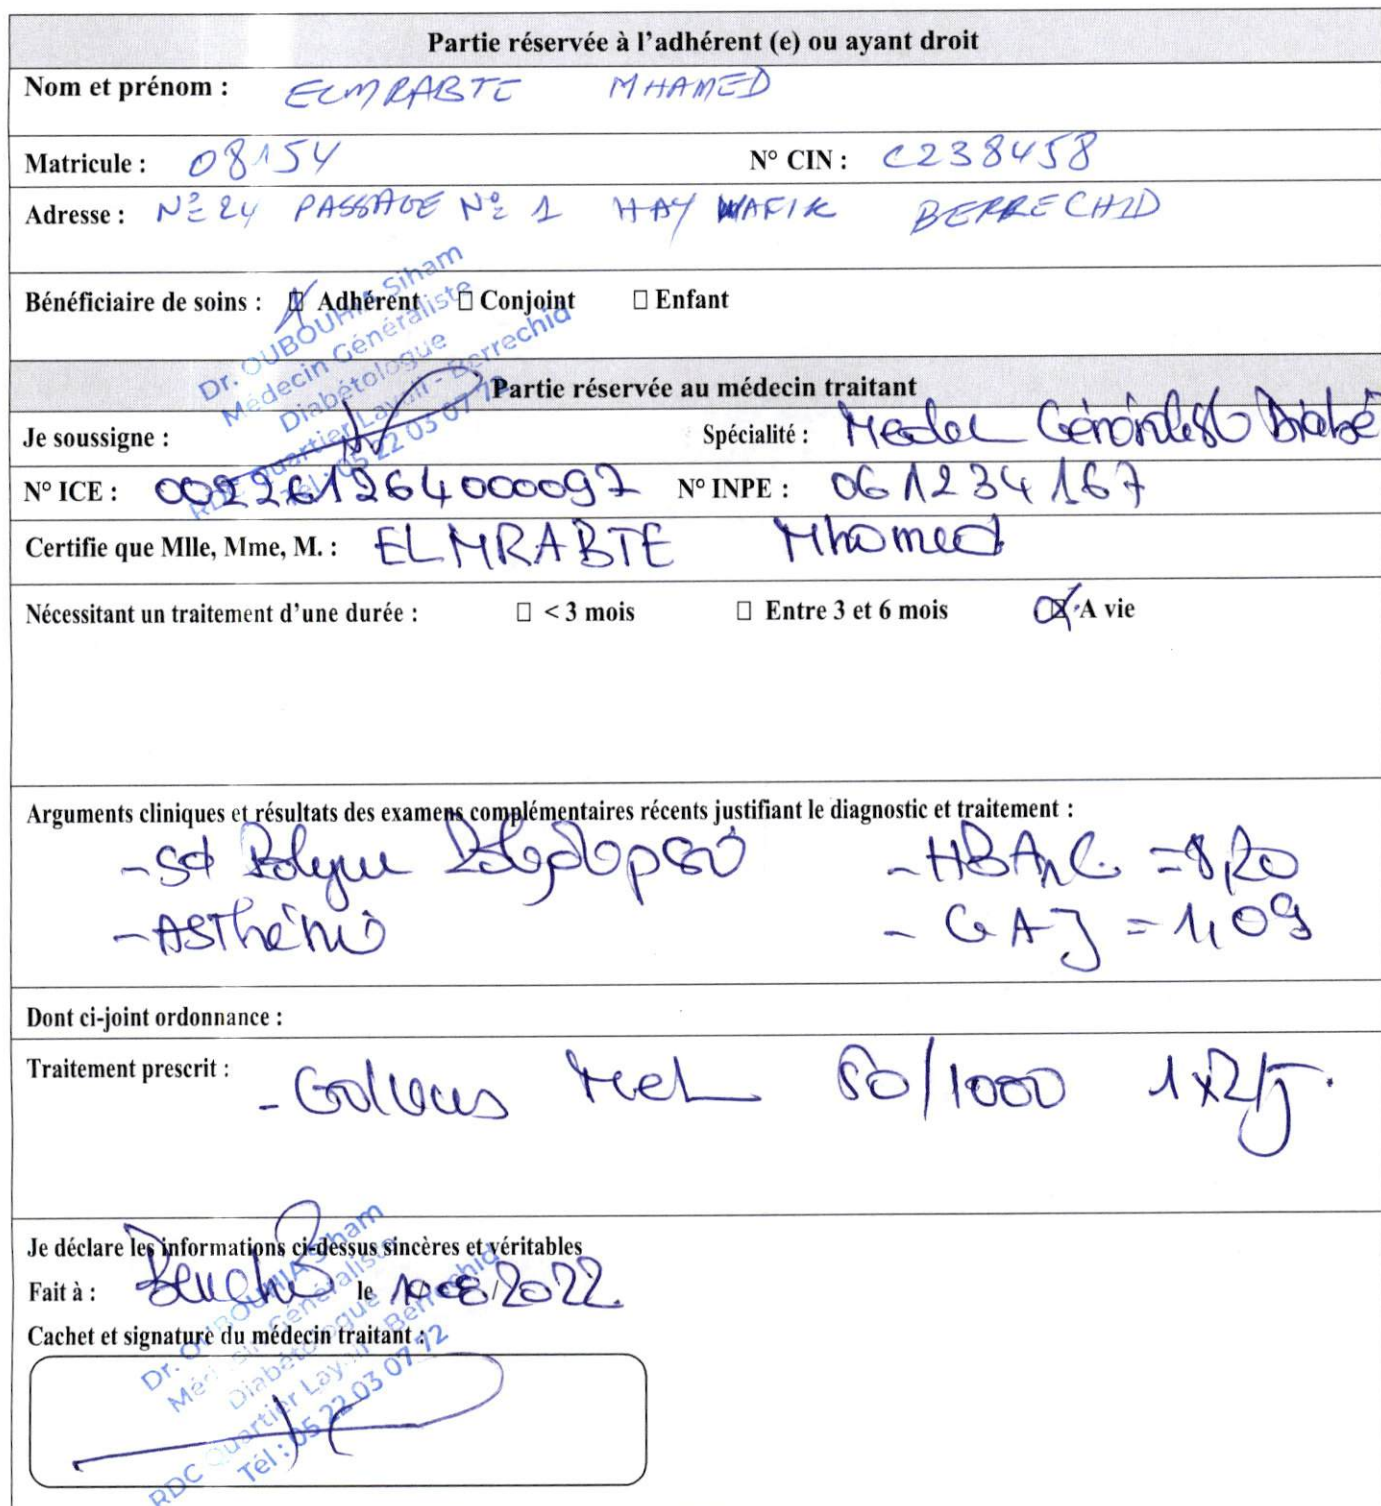 Partie réservée à l'adhérent (e) ou ayant droit
Nom et prénom : ELMRABTE MHAMED
Matricule : 08154 N° CIN : C238458
Adresse : N° 24 PASSAGE N° 1 HAY WAFIK BERRECHID
Bénéficiaire de soins : Adhérent □ Conjoint □ Enfant
Dr. OUBOUHIA Siham
Médecin Généraliste
Diabétologue
RDC Quartier Lay... - Berrechid
Tél : 05 22 03 07 72
Partie réservée au médecin traitant
Je soussigne : Spécialité : Généraliste Diabé
N° ICE : 002261264000097 N° INPE : 061234167
Certifie que Mlle, Mme, M. : ELMRABTE Mhamed
Nécessitant un traitement d'une durée : □ < 3 mois □ Entre 3 et 6 mois A vie
Arguments cliniques et résultats des examens complémentaires récents justifiant le diagnostic et traitement :
- Sd - HBA1C = 8,20
- ASThénie - GAJ = 1,09
Dont ci-joint ordonnance :
Traitement prescrit :
- Galvus Met 50/1000 1x2/j.
Je déclare les informations ci-dessus sincères et véritables
Fait à : le /2022
Cachet et signature du médecin traitant :
Dr. OUBOUHIA Siham
Médecin Généraliste
Diabétologue
RDC Quartier Lay... - Berrechid
Tél : 05 22 03 07 72